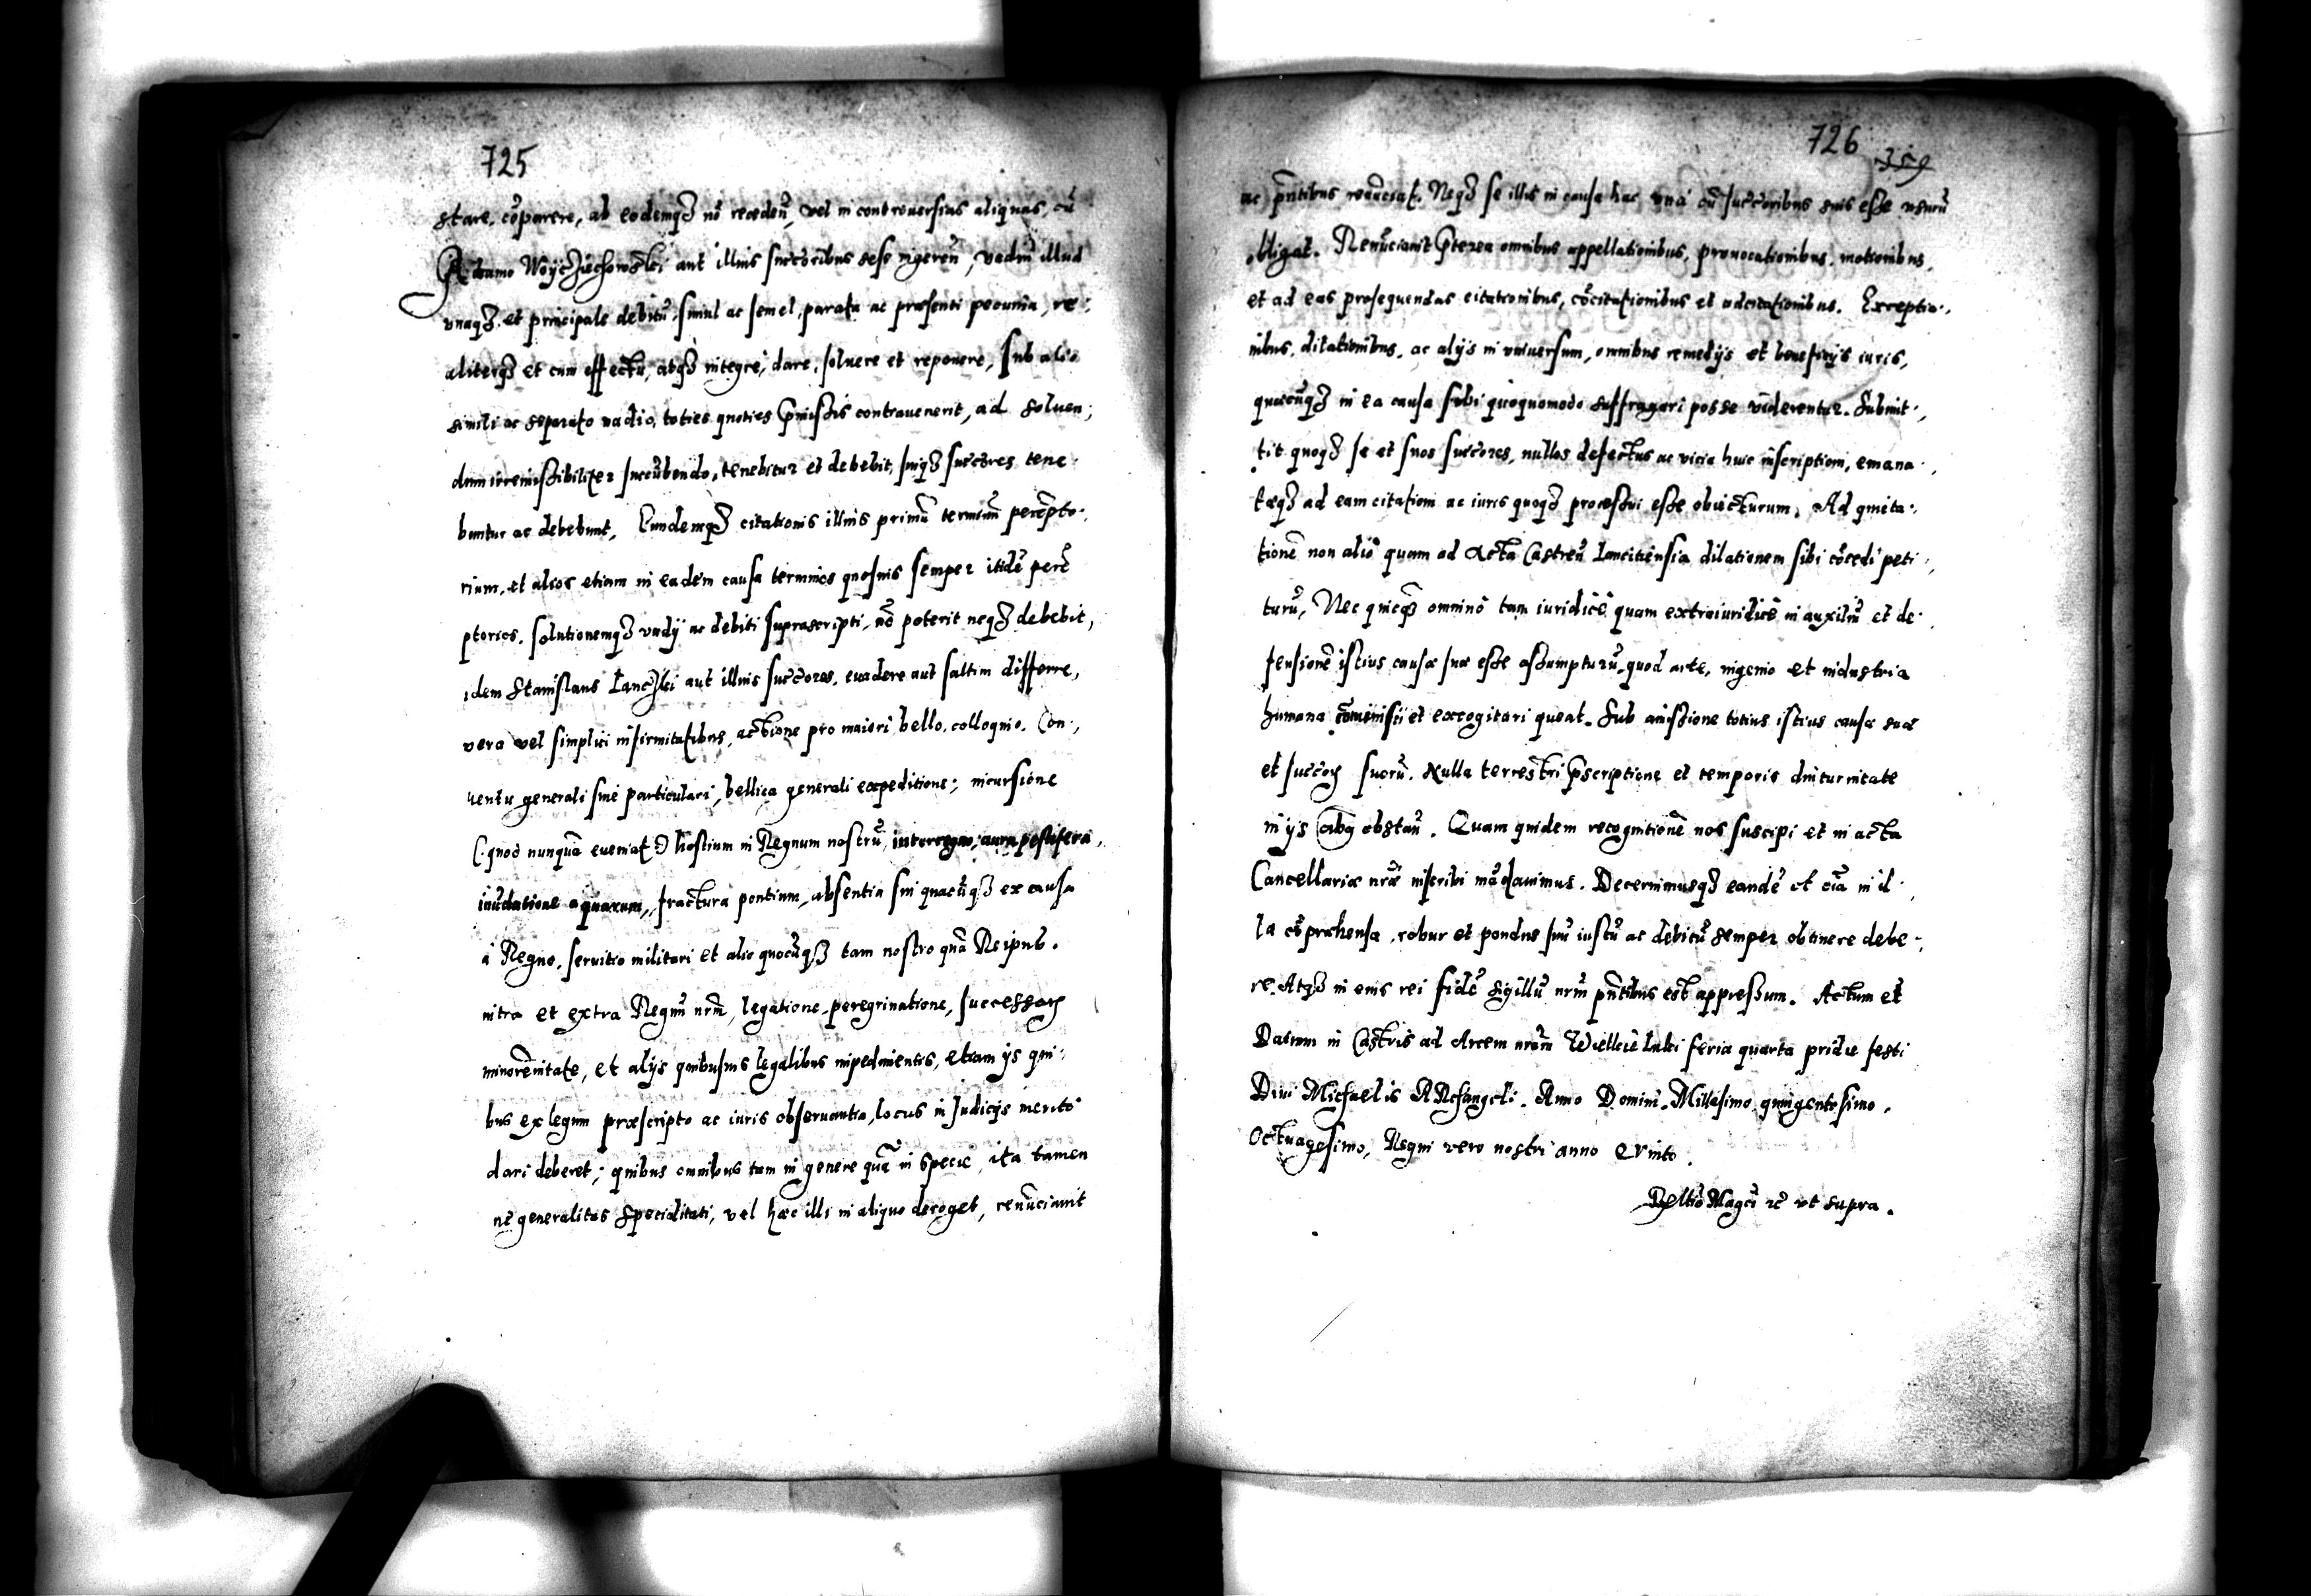 725
stare, cōparere, ab eodemq₃ nō recedeñ, vel in controuersias aliquas, cū
Adamo Woyczÿechowski aut illius succoribus sese ingereñ, vadiū illud
vnaq₃ et principale debitū, simul ac semel, parata ac præsenti pecunia, re:
aliterq₃ et cum effectu, atq₃ integre, dare, soluere et reponere, sub alio
simili ac separato vadio, toties quoties p̄missis contrauenerit, ad soluen:
dum irremissibiliter succūbendo, tenebitur et debebit, suiq₃ succōres tene
buntur ac debebunt. Eundemq₃ citationis illius primū terminū perēpto:
rium, et alios etiam in eadem causa terminos quosuis semper itidē perē
ptorios, solutionemq₃ vadÿ ac debiti suprascripti, nō poterit neq₃ debebit,
idem Stanislaus Lanczki aut illius succōres, euadere aut saltim differre,
vera vel simplici infirmitatibus, actione pro maiori, bello, colloquio, Con:
uentu generali siue particulari, bellica generali expeditione; incursione
(quod nunquā eueniat) hostium in Regnum nostrū, interregno, aura pestifera,
inūdatione aquarum, fractura pontium, absentia sui quacūq₃ ex causa
à Regno, seruitio militari et alio quocūq₃ tam nostro quā Reipub.
intra et extra Regnū nrm̄, legatione, peregrinatione, successorꝝ
minorēnitate, et alÿs quibusuis legalibus impedimentis, etiam ÿs qui:
bus ex legum præscripto ac iuris obseruantia, locus in Judicÿs merito
dari deberet; quibus omnibus tam in genere quā in specie, ita tamen
ne generalitas specialitati, vel hæc illi in aliquo deroget, renūciauit
726
359
ac p̄ntibus renūciat. Neq₃ se illis in causa hac vnà cū succōribus suis esse vsurū
obligat. Renūciauit p̄terea omnibus appellationibus, prouocationibus, motionibus,
et ad eas prosequendas citationibus, cōcitationibus et adcitationibus. Exceptio:
nibus, dilationibus, ac alÿs in vniuersum, omnibus remedÿs et beneficÿs iuris,
quæcūq₃ in ea causa sibi quoquomodo suffragari posse viderentur. Submit:
tit quoq₃ se et suos succōres, nullos defectus ac vicia huic inscriptioni, emana:
tæq₃ ad eam citationi ac iuris quoq₃ processui esse obiecturum. Ad quieta:
tionē non aliò quam ad Acta Castreñ Lanciciensia dilationem sibi cōcedi peti:
turū, Nec quicq̄ omninò tam iuridicè quam extraiuridicè in auxiliū et de:
fensionē istius causæ suæ esse assumpturū, quod arte, ingenio et industria
humana cōminisci et excogitari queat. Sub amissione totius istius causæ suæ
et succorꝝ suorū. Nulla terrestri p̄scriptione et temporis diuturnitate
in ÿs obstañ. Quam quidem recognitionē nos suscipi et in acta
Cancellariæ nr̄æ inscribi mādauimus. Decernimusq₃ eandē et oīa in il:
la cōprehensa, robur et pondus suū iustū ac debitū semper obtinere debe:
re. Atq₃ in eius rei fidē Sigillū nrm̄ p̄ntibus est appressum. Actum et
Datum in Castris ad Arcem nram̄ Wielkie Luki feria quarta pridie festi
Diui Michaelis ARchangeli. Anno Domini. Millesimo quingentesimo.
Octuagesimo, Regni vero nostri anno Qvinto.
Reltio Magci ꝛc̄ vt supra.